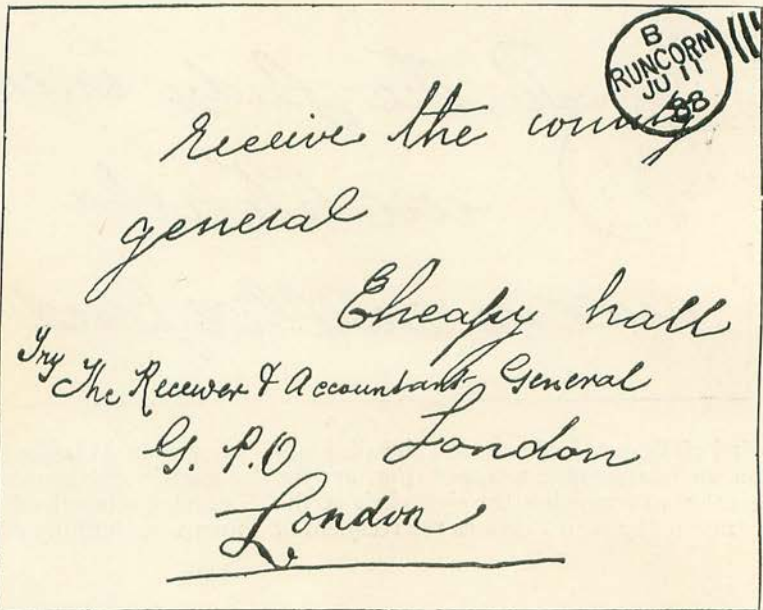 B
RUNCORN
JU 11
88
Receive the county
general
Eheapy hall
Try The Receiver & Accountant General
G. P. O London
London